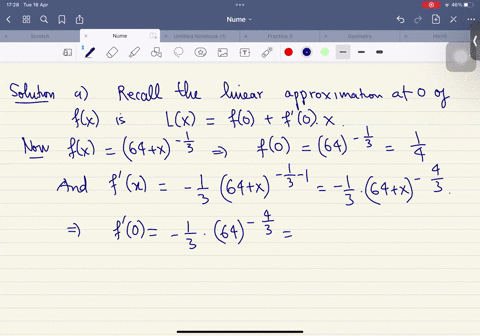 17:28 Tue 16 Apr
46%
Nume
Scratch
Nume
Untitled Notebook (1)
Practice 3
Geometry
Solution a) Recall the linear approximation at 0 of
f(x) is L(x) = f(0) + f'(0).x.
Now f(x) = (64+x)^{-1/3} ⇒ f(0) = (64)^{-1/3} = 1/4
And f'(x) = -1/3 (64+x)^{-1/3-1} = -1/3 . (64+x)^{-4/3}.
⇒ f'(0) = -1/3 . (64)^{-4/3} =